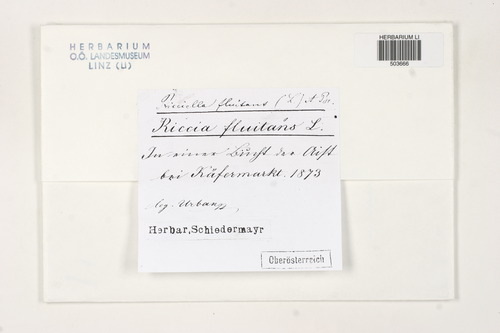 HERBARIUM
O.Ö. LANDESMUSEUM
LINZ (LI)
HERBARIUM LI
503666
Ricciella fluitans (L.) A. Br.
Riccia fluitans L.
In einer Bucht der Aist
bei Käfermarkt. 1873
leg. Urban
Herbar,Schiedermayr
Oberösterreich